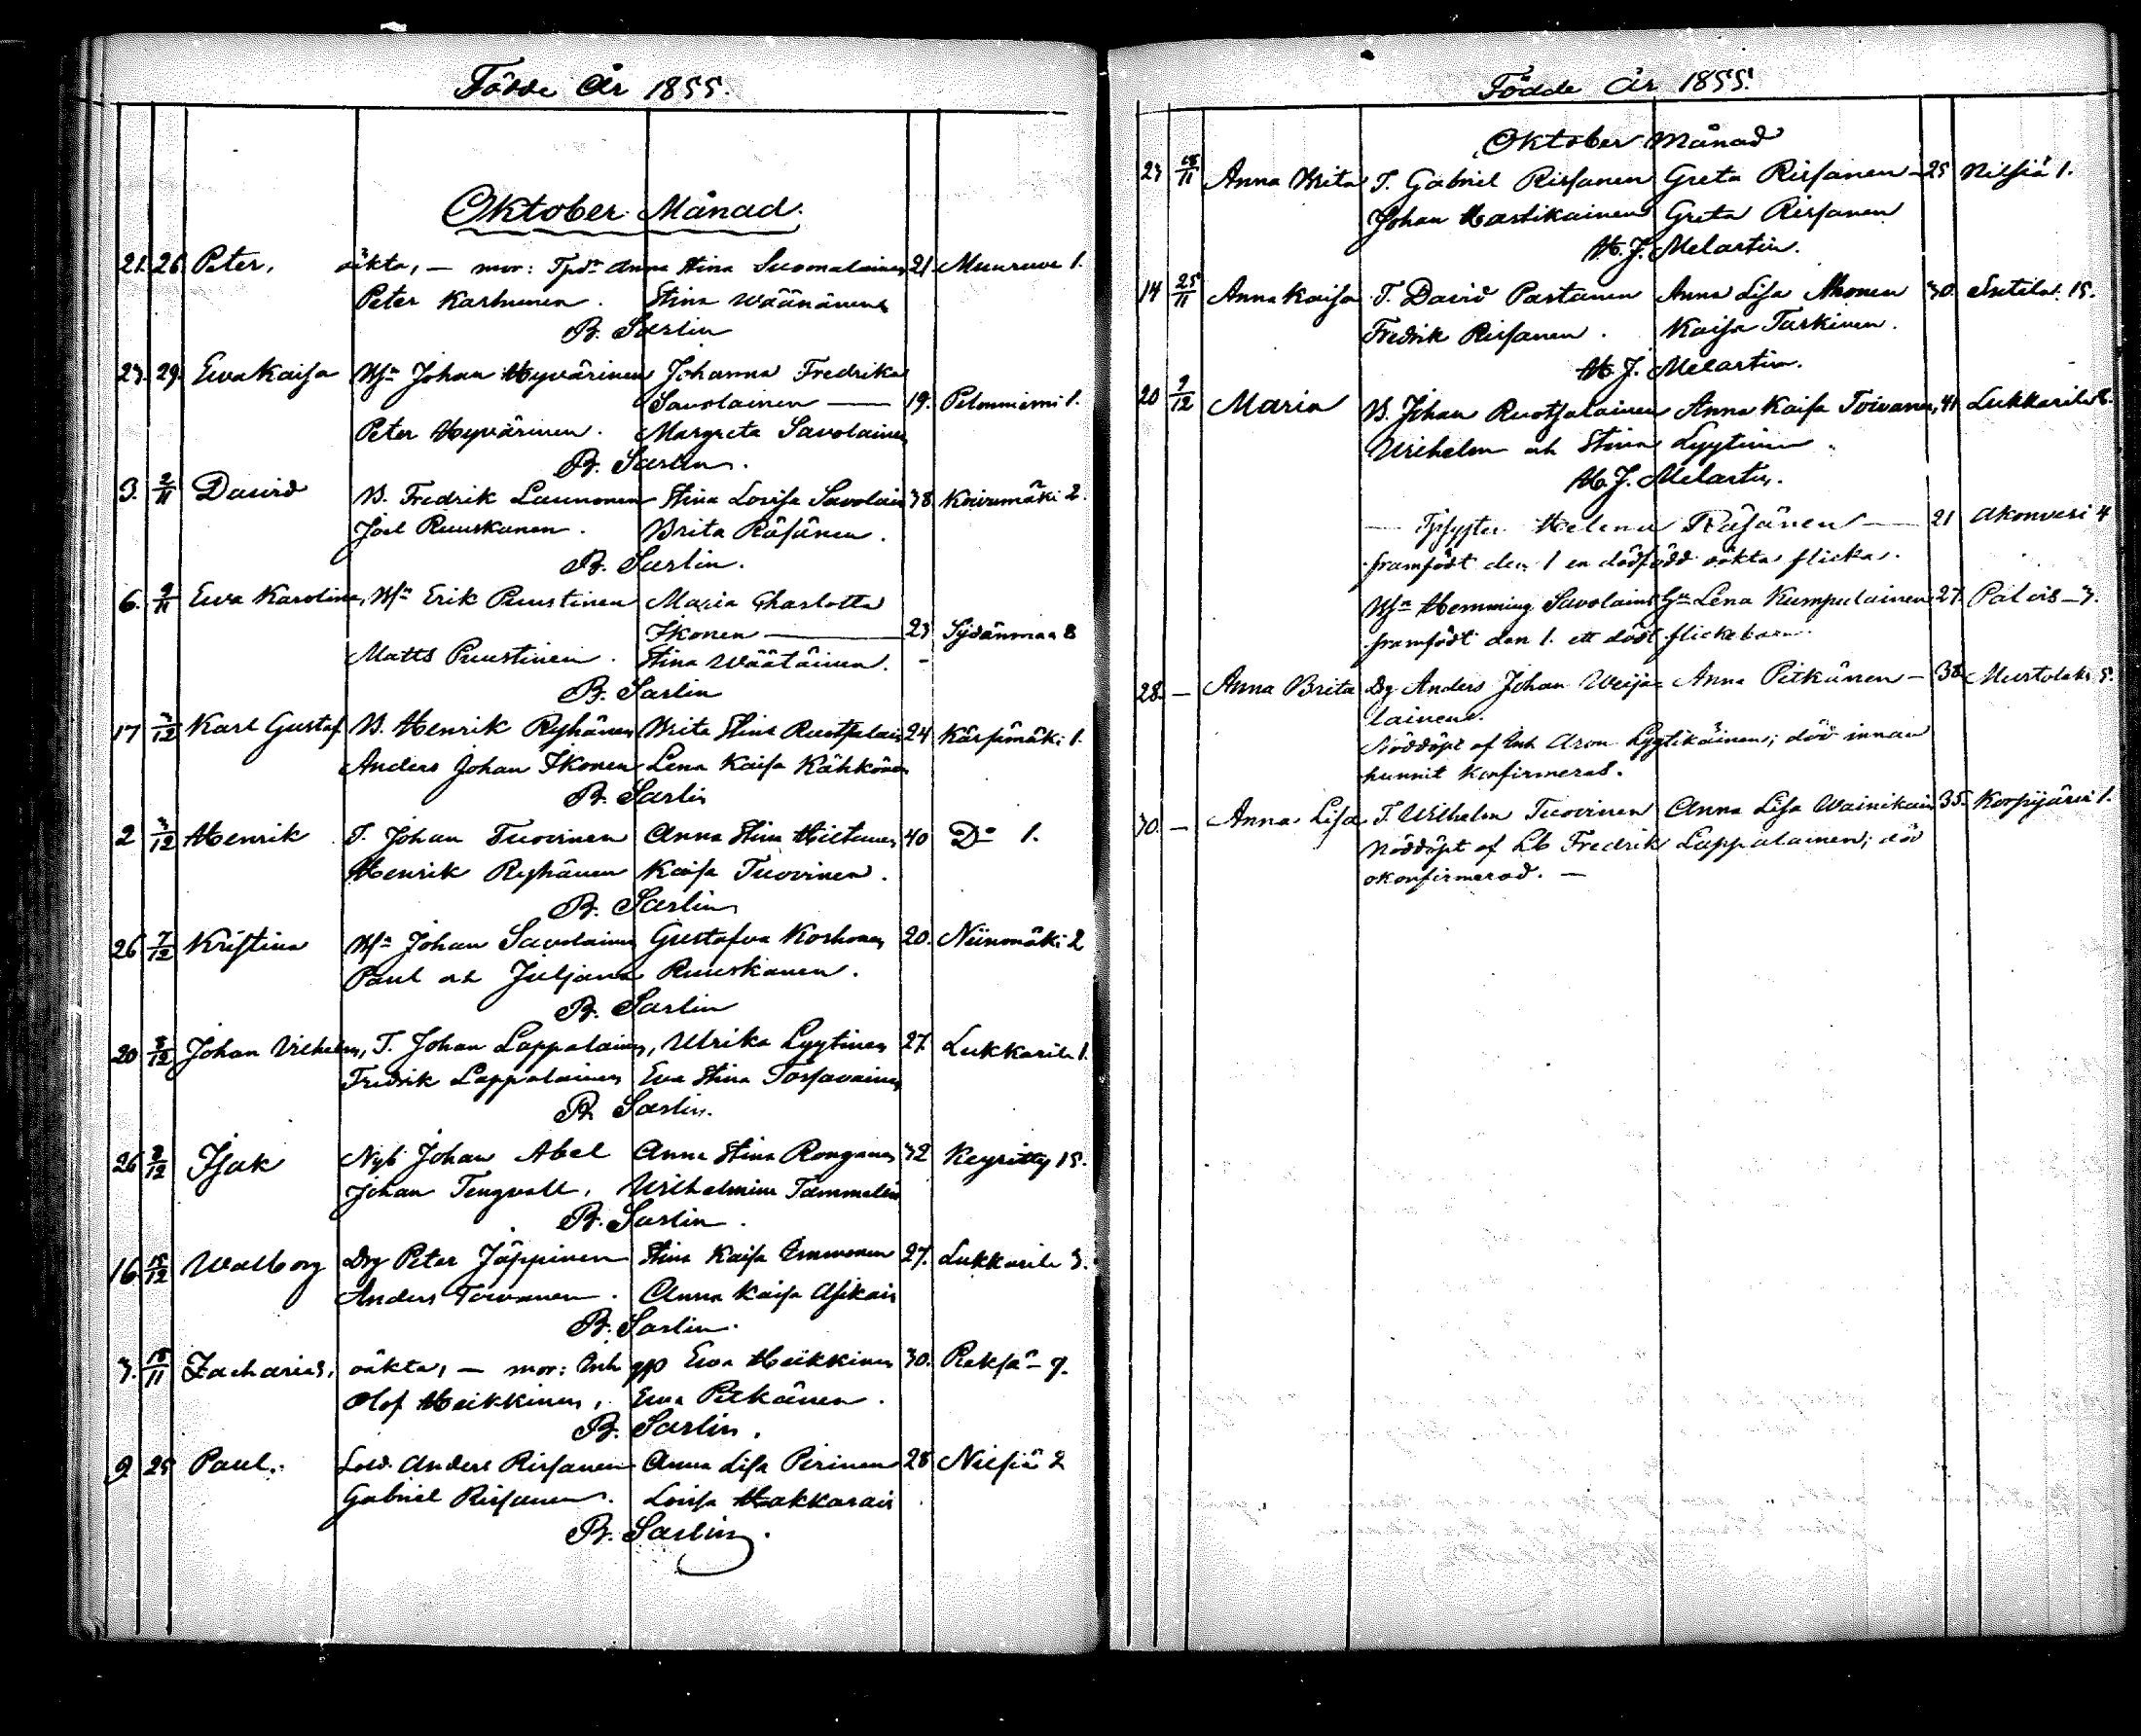 Födde År 1855.
Oktober Månad.
21. 26 Peter, oäkta, — mor: Tpd:r Anna Stina Suomalainen 21. Muuruve 1.
Peter Karhunen. Stina Wäänänen
B. Sarlin
23. 29. Ewa Kaisa Bfn Johan Hyvärinen Johanna Fredrika
Savolainen — 19. Pelonniemi 1.
Peter Hyvärinen. Margreta Savolainen
B. Sarlin.
3. 2/11 David B. Fredrik Launonen Stina Lovisa Savolain 38 Koivumäki 2.
Joel Ruuskanen. Brita Räsänen.
B. Sarlin.
6. 9/11 Ewa Karolina, Bfn Erik Puustinen Maria Charlotta
Ikonen — 23 Sydänmaa 8
Matts Puustinen. Stina Wäätäinen.
B. Sarlin
17 2/12 Karl Gustaf B. Henrik Ryhänen Brita Stina Ruotsalain 24 Kärsämäki 1.
Anders Johan Ikonen Lena Kaisa Kähkönen
B. Sarlin
2 3/12 Henrik T. Johan Tuovinen Anna Stina Hiltunen 40 Do 1.
Henrik Ryhänen Kaisa Tuovinen.
B. Sarlin
26 7/12 Kristina Bfn Johan Savolainen Gustafva Korhonen 20. Niinimäki 2
Paul och Juljana Ruuskanen.
B. Sarlin
20 8/12 Johan Vilhelm, T. Johan Lappalainen, Ulrika Lyytinen 27. Lukkarila 1.
Fredrik Lappalainen Eva Stina Torsavainen
B. Sarlin.
26 9/12 Isak Nyb Johan Abel Anna Stina Ronganen 32 Keyritty 15.
Johan Tengvall, Wilhelmina Tammelin
B. Sarlin.
16 15/12 Walborg Drg Peter Jäppinen Stina Kaisa Immonen 27. Lukkarila 3.
Anders Toivanen. Anna Kaisa Asikain
B. Sarlin.
3. 18/11 Zacharias, oäkta, — mor: Enh Ewa Heikkinen 30. Reksä — 7.
Olof Heikkinen, Ewa Pitkänen.
B. Sarlin.
9 25 Paul. Sold. Anders Rissanen Anna Lisa Pirinen 28 Nilsiä 2
Gabriel Rissanen. Lovisa Hakkarain
B. Sarlin.
Födde År 1855.
Oktober Månad
23 18/11 Anna Brita T. Gabriel Rissanen Greta Rissanen — 25 Nilsiä 1.
Johan Hartikainen Greta Rissanen
H. J. Melartin.
14 25/11 Anna Kaisa T. David Partanen Anna Lisa Ahonen 30. Sutila 15.
Fredrik Rissanen. Kaisa Turkinen.
H. J. Melartin.
20 9/12 Maria B. Johan Ruotsalainen Anna Kaisa Toivanen, 41 Lukkarila 8.
Wilhelm och Stina Lyytinen
H. J. Melartin.
— Helena Räsänen — 21 Akonvesi 4
framfödt den 1 en dödfödd oäkta flicka.
Bfn Hemming Savolainen Lena Kumpulainen 27. Palois — 3.
framfödt den 1. ett dödt flickebarn.
28. — Anna Brita Drg Anders Johan Weija- Anna Pitkänen — 38 Murtolaks 5.
lainen.
Nöddöpt af Enh Aron Lyytikäinen; död innan
hunnit konfirmeras.
30. — Anna Lisa T. Wilhelm Tuovinen Anna Lisa Wainikain 35. Korpijärvi 1.
Nöddöpt af Lb Fredrik Lappalainen; död
okonfirmerad. —